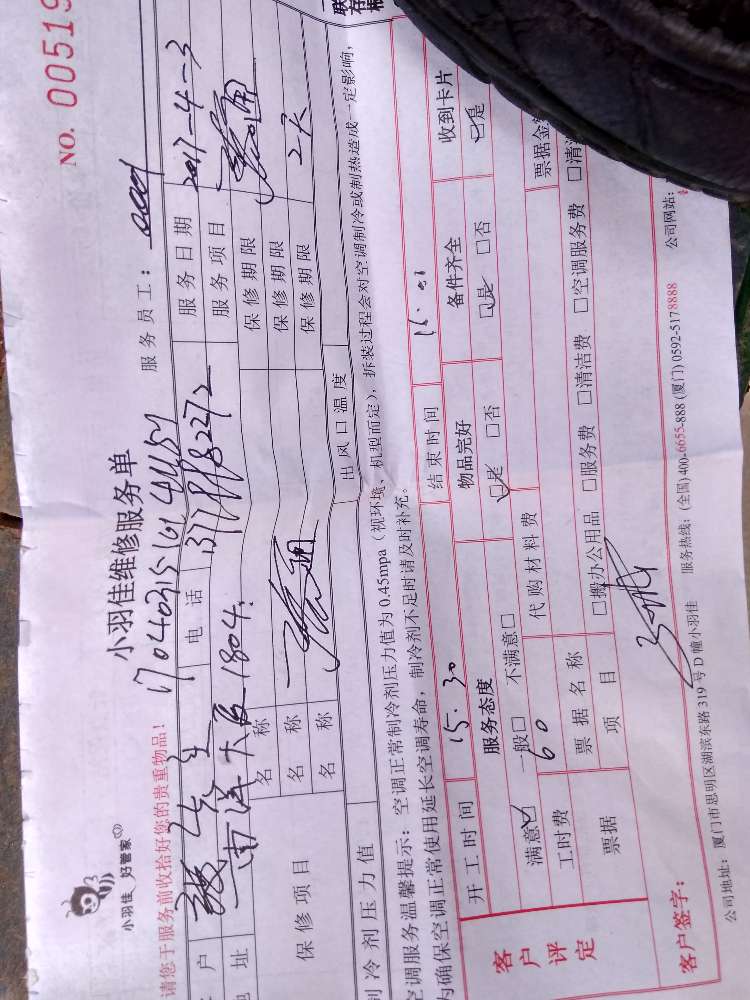 联
存根
NO. 00519
小羽佳 好管家
小羽佳维修服务单
请您于服务前收拾好您的贵重物品!
服务员工:
户 张先生 电话 服务日期 2017-4-3
地址 南洋大厦 1804. 服务项目 疏通
保修项目
名称 保修期限
名称 疏通 保修期限 2天
名称 保修期限
制冷剂压力值 出风口温度
空调服务温馨提示: 空调正常制冷剂压力值为 0.45mpa(视环境、机型而定), 拆装过程会对空调制冷或制热造成一定影响,
为确保空调正常使用延长空调寿命, 制冷剂不足时请及时补充。
客户评定
开工时间 15.30 结束时间
服务态度 物品完好 备件齐全 收到卡片
满意☑ 一般□ 不满意□ ☑是 □否 ☑是 □否 ☑是
工时费 60 代购材料费 票据金
票据 票据名称 □搬办公用品 □服务费 □清洁费 □空调服务费 □清
项目
客户签字:
公司地址: 厦门市思明区湖滨东路 319 号 D 幢小羽佳 服务热线: (全国) 400-6655-888 (厦门) 0592-5178888 公司网站: